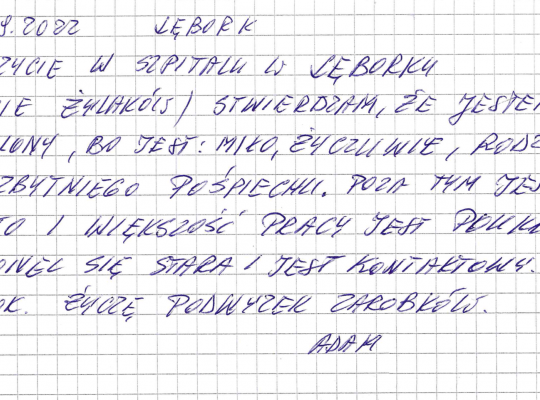 9.2022 LĘBORK
ŻYCIE W SZPITALU W LĘBORKU
IE ŻYLAKÓW) STWIERDZAM, ŻE JESTEM
LONY, BO JEST: MIŁO, ŻYCZLIWIE, RODZ
ZBYTNIEGO POŚPIECHU. POZA TYM JES
TO I WIĘKSZOŚĆ PRACY JEST
ONEL SIĘ STARA I JEST KONTAKTOWY.
OK. ŻYCZĘ PODWYŻEK ZAROBKÓW.
ADAM